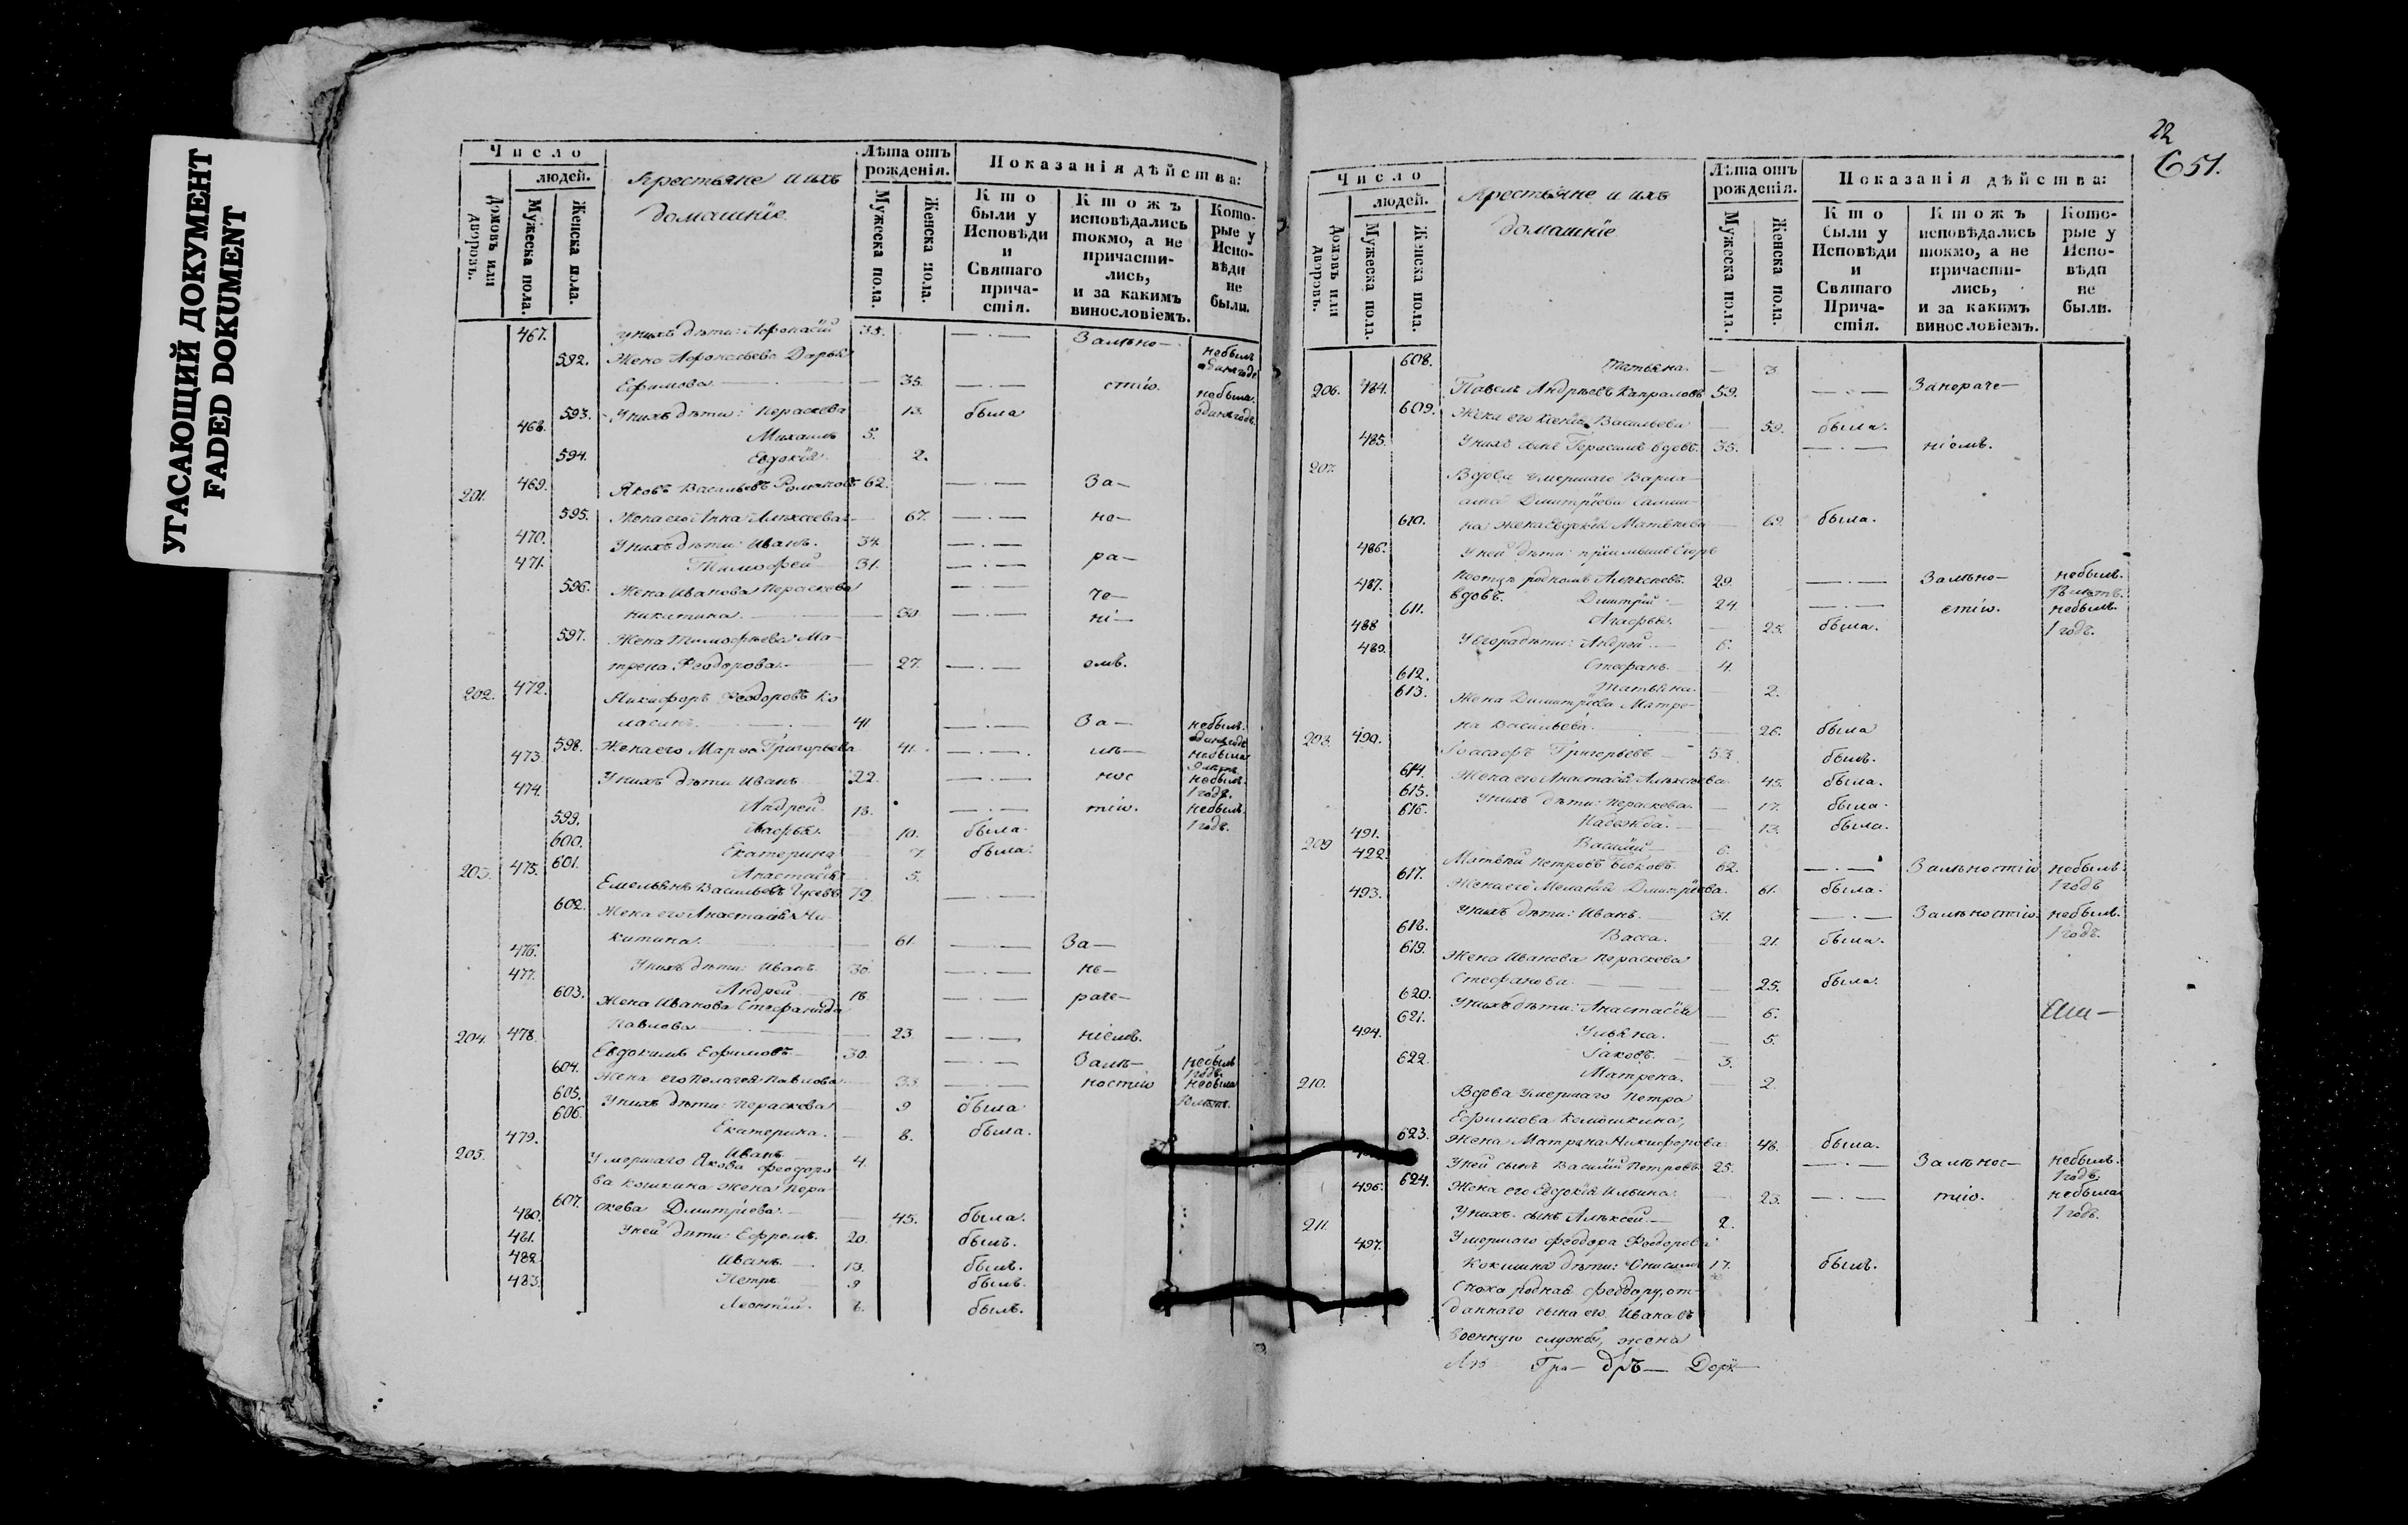 УГАСАЮЩИЙ ДОКУМЕНТ
FADED DOKUMENT
Число
людей.
Домовъ или дворовъ.
Мужеска пола.
Женска пола.
Крестьяне и ихъ
домашніе
Лѣта отъ рожденія.
Мужеска пола.
Женска пола.
Показанія дѣйства:
Кто были у Исповѣди и Святаго причастія.
Ктожъ исповѣдались токмо, а не причастились, и за какимъ винословіемъ.
Которые у Исповѣди не были.
467. У нихъ дѣти: Афонасій 35. — . — Залѣно—
небылъ
592. Жена Афонасьева Дарья
Ефимова. — 35. — . — стію. небыла.
593. У нихъ дѣти: Параскева 13. была
468. Михаилъ 5.
594. Евдокія 2.
201. 469. Яковъ Васильевъ 62. — . — За—
595. Жена его Анна Алексеева 67. — . — не—
470. У нихъ дѣти: Иванъ. 34. — . —
471. Тимофей 31. — . — ра—
596. Жена Иванова Параскева — . — че—
Никитина. — 30 ні—
597. Жена Тимофеева Ма—
трена Феодорова. — 27. — . — емъ.
202. 472. Никифоръ Феодоровъ Ко
ласинъ. 41. — . — За— небылъ.
598. Жена его Марѳа Григорьева 41. — . — лѣ— небыла
473. У нихъ дѣти Иванъ 22. — . — нос небылъ.
1 годъ.
474. Андрей 13. — . — тію. небылъ.
1 годъ.
599. Агафья. 10. была.
600. Екатерина 7. была.
601. Анастасія 5.
203. 475. Емельянъ Васильевъ Гусевъ 72. — . —
602. Жена его Анастасія Ни
китина. — 61. — . — За—
476. У нихъ дѣти: Иванъ. 30. — . — не—
477. Андрей 18. — . — раче—
603. Жена Иванова Стефанида
Павлова — 23. — . — ніемъ.
204. 478. Евдокимъ Ефимовъ. — 30. — . — Залѣ— небылъ
1 годъ.
604. Жена его Пелагея Павлова 33. — . — ностію небыла
605. У нихъ дѣти: Параскева 9 была
606. Екатерина. — 8. была.
479. Иванъ — 4.
205. Умершаго Якова Феодоро
ва Кошкина жена Пара
607. скева Дмитріева. — 45. была.
480. У ней дѣти: Ефремъ. 20. былъ.
481. Иванъ. — 13. былъ.
482. Петръ 9 былъ.
483. Леонтій. 6. былъ.
22
651.
Число
людей.
Домовъ или дворовъ.
Мужеска пола.
Женска пола.
Крестьяне и ихъ
домашніе
Лѣта отъ рожденія.
Мужеска пола.
Женска пола.
Показанія дѣйства:
Кто были у Исповѣди и Святаго Причастія.
Ктожъ исповѣдались токмо, а не причастились, и за какимъ винословіемъ.
Которые у Исповѣди не были.
608. Татьяна. — 3.
206. 484. Павелъ Андреевъ Капраловъ 59. — . — Занераче—
609. Жена его Ксенія Васильева 59. была.
485. У нихъ сынъ Герасимъ вдовъ. 35. — . — ніемъ.
207. Вдова умершаго Варла
ама Дмитріева
610. на жена Евдокія Матвѣева 69. была.
486. У ней дѣти: Егоръ
Алексеевъ. 29. — . — Залѣно— небылъ.
487. вдовъ. Дмитрій — 24. — . — стію. небылъ.
1 годъ.
611. Агафья. 25. была.
488 У Егора дѣти: Андрей — 6.
489. Стефанъ 4.
612. Татьяна. 2.
613. Жена Дмитріева Матре—
на Васильева. — 26. была
208. 490. Іоасафъ Григорьевъ — 53. былъ.
614. Жена его Анастасія Алексеева 45. была.
615. У нихъ дѣти: Параскева. 17. была.
616. Надежда. 13. была.
491. Василій — 6.
209 492. Матвѣй Петровъ Быковъ. 62. — . — Залѣностію небылъ.
1 годъ
617. Жена его Меланія Дмитріева 61. была.
493. У нихъ дѣти: Иванъ. 31. — . — Залѣностію. небылъ.
1 годъ.
618. Васса. 21. была.
619. Жена Иванова Параскева
Стефанова. — 25. была.
620. У нихъ дѣти: Анастасія — 6.
621. Ульяна. 5.
494. Іаковъ. 3.
622. Матрена. 2.
210. Вдова умершаго Петра
Ефимова
623. Жена Матрена Никифорова 48. была.
У ней сынъ Василій Петровъ 25. — . — Залѣнос— небылъ.
1 годъ.
624. Жена его Евдокія Ильина. 23. — . — тію. небыла
1 годъ.
496. У нихъ сынъ Алексей. — 2.
211. Умершаго Феодора Феодорова
497. Кокшина дѣти: 17. былъ.
Сноха родная Феодору, от—
даннаго сына его Ивана въ
военную службу, жена